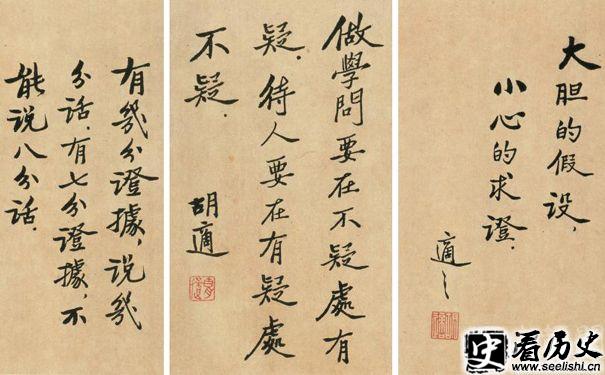 大胆的假设，
小心的求證．
適之
做學問要在不疑處有
疑．待人要在有疑處
不疑．
胡適
有幾分證據，說幾
分話．有七分證據，不
能说八分話．
史看历史
www.seelishi.cn